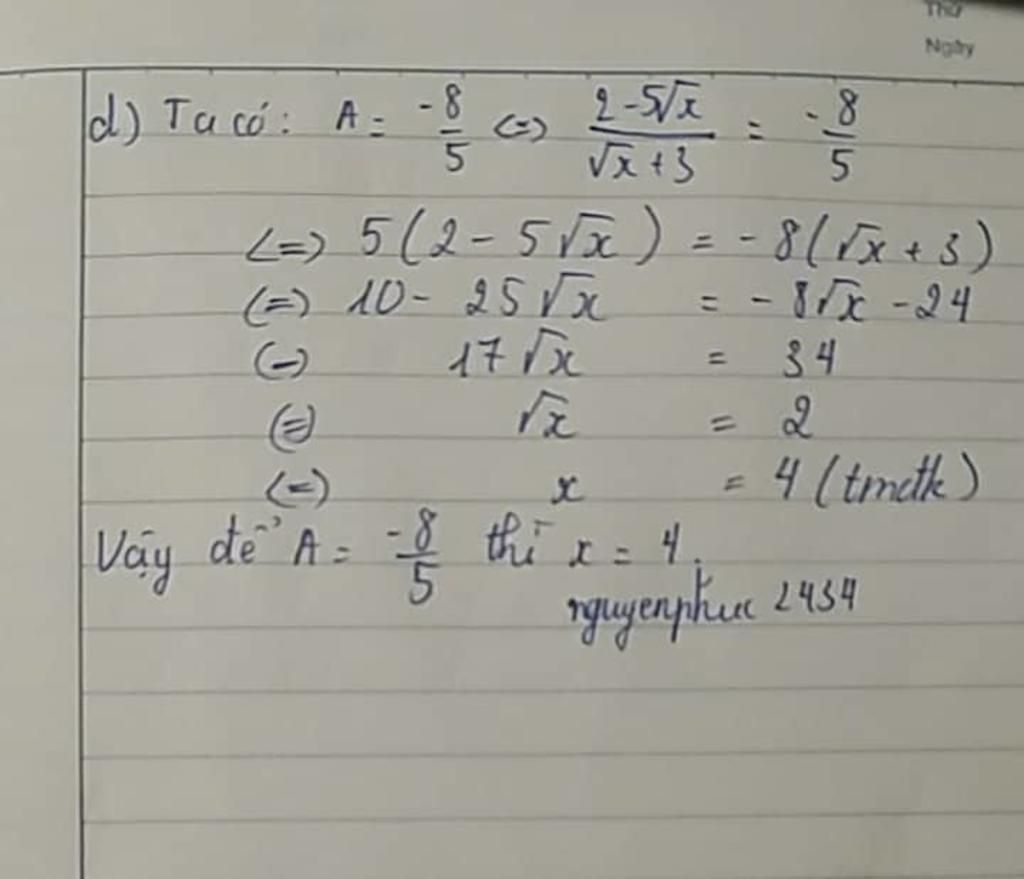 Thứ
Ngày
d) Ta có: A = -8/5 <=> (2 - 5√x)/(√x + 3) = -8/5
<=> 5(2 - 5√x) = -8(√x + 3)
<=> 10 - 25√x = -8√x - 24
<-> 17√x = 34
<=> √x = 2
<=> x = 4 (tmđk)
Vậy để A = -8/5 thì x = 4.
nguyenphuc 2434